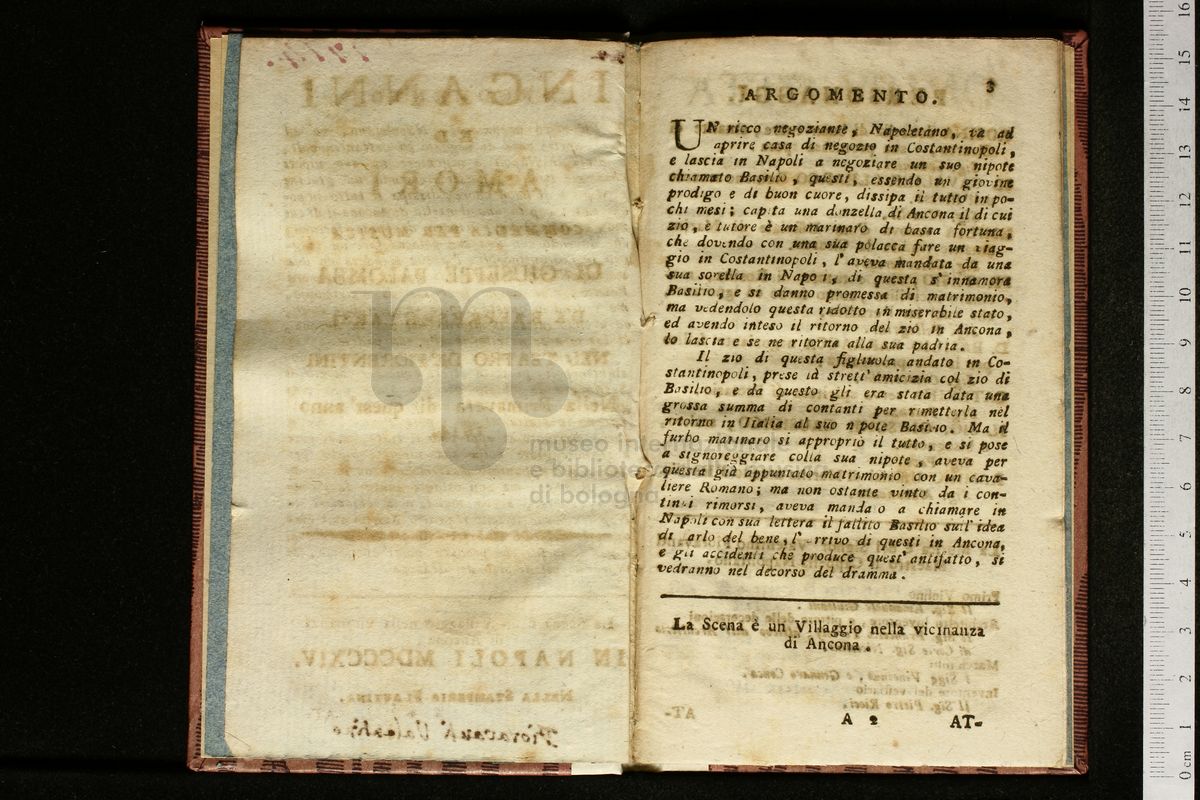 3
ARGOMENTO.
UN ricco negoziante, Napoletano, va ad
aprire casa di negozio in Costantinopoli,
e lascia in Napoli a negoziare un suo nipote
chiamato Basilio, questi, essendo un giovine
prodigo e di buon cuore, dissipa il tutto in po-
chi mesi; capita una donzella di Ancona il di cui
zio, e tutore è un marinaro di bassa fortuna,
che dovendo con una sua polacca fare un viag-
gio in Costantinopoli, l'aveva mandata da una
sua sorella in Napoli, di questa s'innamora
Basilio, e si danno promessa di matrimonio,
ma vedendolo questa ridotto in miserabile stato,
ed avendo inteso il ritorno del zio in Ancona,
lo lascia e se ne ritorna alla sua padria.
Il zio di questa figliuola andato in Co-
stantinopoli, prese là strett'amicizia col zio di
Basilio, e da questo gli era stata data una
grossa summa di contanti per rimetterla nel
ritorno in Italia al suo nipote Basilio. Ma il
furbo marinaro si appropriò il tutto, e si pose
a signoreggiare colla sua nipote, aveva per
questa già appuntato matrimonio con un cava-
liere Romano; ma non ostante vinto da i con-
tinui rimorsi, aveva mandato a chiamare in
Napoli con sua lettera il fallito Basilio sull'idea
di farlo del bene, l'arrivo di questi in Ancona,
e gli accidenti che produce quest'antifatto, si
vedranno nel decorso del dramma.
La Scena è un Villaggio nella vicinanza
di Ancona.
A 2 AT-
museo inter
e bibliote
di bologna
INGANNI
ED
AMORI
DI GIUSEPPE PALOMBA
IN NAPOLI MDCCCXIV.
NELLA STAMPERIA FLAUTINA.
Fioravanti Valentino
0 cm 1 2 3 4 5 6 7 8 9 10 11 12 13 14 15 16